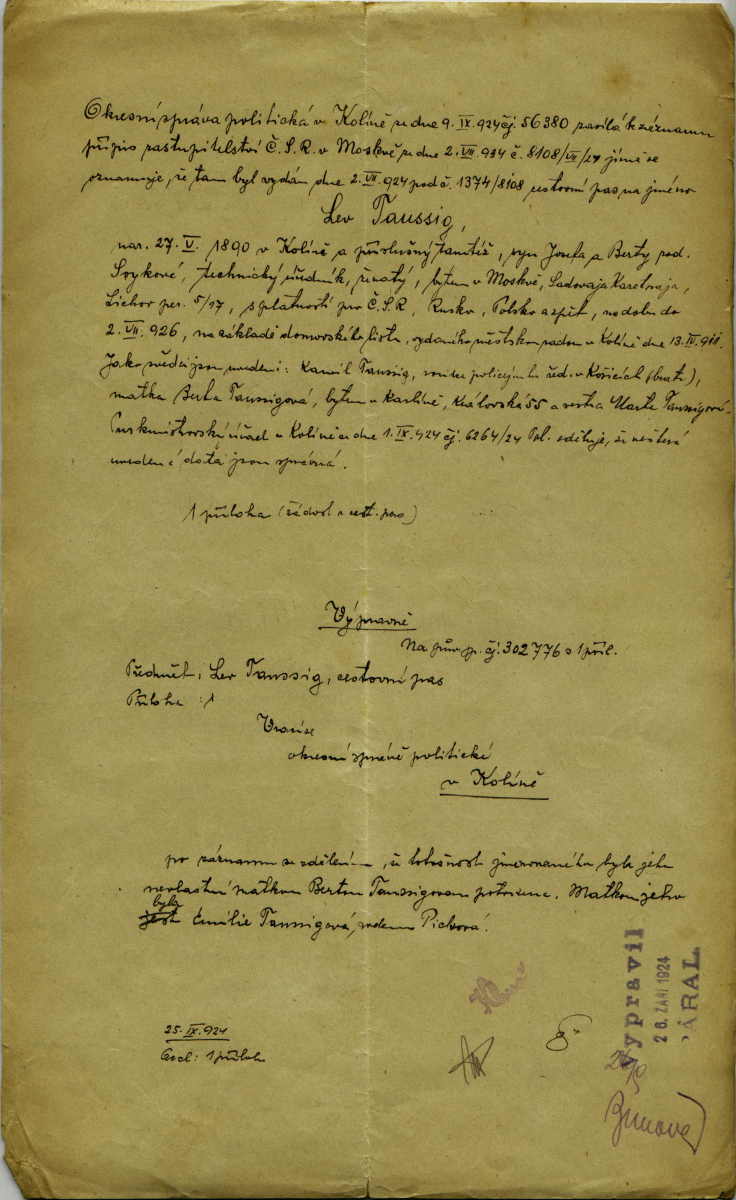 Okresní správa politická v Kolíně ze dne 9. IX. 924 čj. 56380 zasílá k záznamu
přípis zastupitelství Č.S.R. v Moskvě ze dne 2. VII. 924 č. 8108/VII/24 jímž se
oznamuje, že tam byl vydán dne 2. VII. 924 pod č. 1374/8108 cestovní pas na jméno
Lev Taussig,
nar. 27. V. 1890 v Kolíně a příslušný tamtéž, syn Josefa a Berty roz.
Soykové, technický úředník, ženatý, bytem v Moskvě, Sadovaja Karetnaja,
Lichov per. 5/17, s platností pro Č.S.R, Rusko, Polsko a zpět, na dobu do
2. VII. 926, na základě domovského listu, vydaného městskou radou v Kolíně dne 13. IV. 911.
Jako svědci jsou uvedeni: Kamil Taussig, policejního řed. v Košicích (bratr),
matka Berta Taussigová, bytem v Karlíně, Královská 55 a sestra Marta Taussigová.
Purkmistrovský úřad v Kolíně ze dne 1. IX. 924 čj. 6264/24 Pol. sděluje, že veškerá
uvedená data jsou správná.
1 příloha (žádost o cest. pas)
Výpravně
Na pův. čj. 302776 s 1 příl.
Předmět: Lev Taussig, cestovní pas
Příloha: 1
Vrací se
okresní správě politické
v Kolíně
po záznamu se sdělením, že totožnost jmenovaného byla jeho
nevlastní matkou Bertou Taussigovou potvrzena. Matkou jeho
byla
jest Emilie Taussigová, rodem Picková.
25. IX. 924
1 příloha
Vypravil
26. ZÁŘÍ 1924